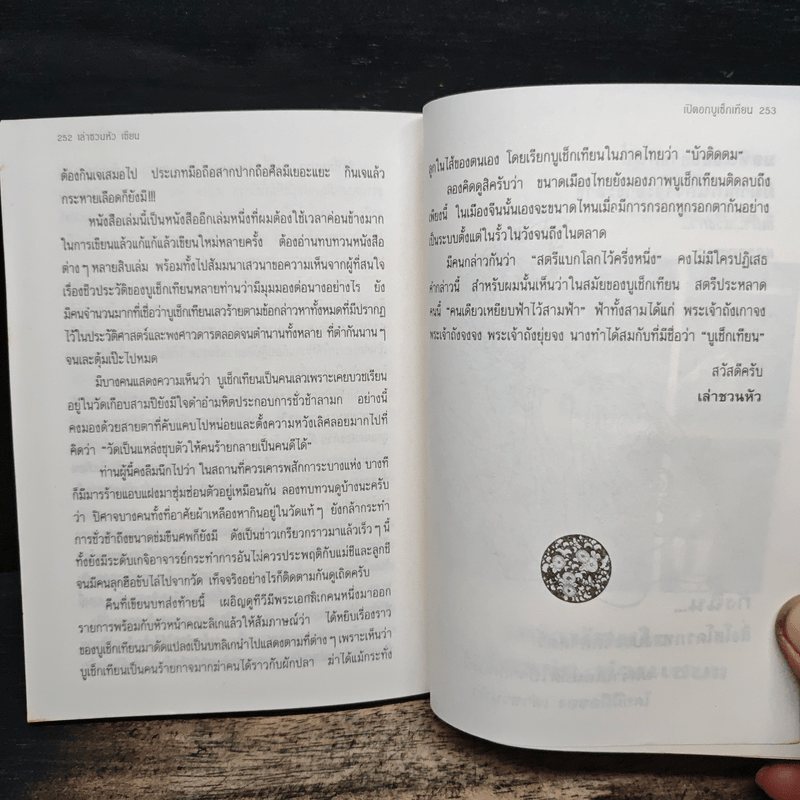 252 เล่าชวนหัว เขียน
ต้องกินเจเสมอไป ประเภทมือถือสากปากถือศีลมีเยอะแยะ กินเจแล้ว
กระหายเลือดก็ยังมี!!!
หนังสือเล่มนี้เป็นหนังสืออีกเล่มหนึ่งที่ผมต้องใช้เวลาค่อนข้างมาก
ในการเขียนแล้วแก้แก้แล้วเขียนใหม่หลายครั้ง ต้องอ่านทบทวนหนังสือ
ต่างๆ หลายสิบเล่ม พร้อมทั้งไปสัมมนาเสวนาขอความเห็นจากผู้ที่สนใจ
เรื่องชีวประวัติของบูเช็กเทียนหลายท่านว่ามีมุมมองต่อนางอย่างไร ยัง
มีคนจำนวนมากที่เชื่อว่าบูเช็กเทียนเลวร้ายตามข้อกล่าวหาทั้งหมดที่มีปรากฏ
ไว้ในประวัติศาสตร์และพงศาวดารตลอดจนตำนานทั้งหลาย ที่ดำก้นนานๆ
จนเละตุ้มเป๊ะไปหมด
มีบางคนแสดงความเห็นว่า บูเช็กเทียนเป็นคนเลวเพราะเคยบวชเรียน
อยู่ในวัดเกือบสามปียังมีใจดำอำมหิตประกอบการชั่วช้าลามก อย่างนี้
คงมองด้วยสายตาที่คับแคบไปหน่อยและตั้งความหวังเลิศลอยมากไปที่
คิดว่า “วัดเป็นแหล่งชุบตัวให้คนร้ายกลายเป็นคนดีได้”
ท่านผู้นี้คงลืมนึกไปว่า ในสถานที่ควรเคารพสักการะบางแห่ง บางที
ก็มีมารร้ายแอบแฝงมาซุ่มซ่อนตัวอยู่เหมือนกัน ลองทบทวนดูบ้างนะครับ
ว่า ปิศาจบางคนทั้งที่อาศัยผ้าเหลืองหากินอยู่ในวัดแท้ๆ ยังกล้ากระทำ
การชั่วช้าถึงขนาดข่มขืนศพก็ยังมี ดังเป็นข่าวเกรียวกราวมาแล้วเร็วๆ นี้
ทั้งยังมีระดับเกจิอาจารย์กระทำการอันไม่ควรประพฤติกับแม่ชีและลูกชี
จนมีคนลุกฮือขับไล่ไปจากวัด เท็จจริงอย่างไรก็ติดตามกันดูเถิดครับ
คืนที่เขียนบทส่งท้ายนี้ เผอิญดูทีวีมีพระเอกลิเกคนหนึ่งมาออก
รายการพร้อมกับหัวหน้าคณะลิเกแล้วให้สัมภาษณ์ว่า ได้หยิบเรื่องราว
ของบูเช็กเทียนมาดัดแปลงเป็นบทลิเกนำไปแสดงตามที่ต่างๆ เพราะเห็นว่า
บูเช็กเทียนเป็นคนร้ายกาจมากฆ่าคนได้ราวกับผักปลา ฆ่าได้แม้กระทั่ง
เปิดอกบูเช็กเทียน 253
ลูกในไส้ของตนเอง โดยเรียกบูเช็กเทียนในภาคไทยว่า “บัวติดตม”
ลองคิดดูสิครับว่า ขนาดเมืองไทยยังมองภาพบูเช็กเทียนติดลบถึง
เพียงนี้ ในเมืองจีนนั้นเองจะขนาดไหนเมื่อมีการกรอกหูกรอกตากันอย่าง
เป็นระบบตั้งแต่ในรั้วในวังจนถึงในตลาด
มีคนกล่าวกันว่า “สตรีแบกโลกไว้ครึ่งหนึ่ง” คงไม่มีใครปฏิเสธ
คำกล่าวนี้ สำหรับผมนั้นเห็นว่าในสมัยของบูเช็กเทียน สตรีประหลาด
คนนี้ “คนเดียวเหยียบฟ้าไว้สามฟ้า” ฟ้าทั้งสามได้แก่ พระเจ้าถังเกาจง
พระเจ้าถังจงจง พระเจ้าถังยุ่ยจง นางทำได้สมกับที่มีชื่อว่า “บูเช็กเทียน”
สวัสดีครับ
เล่าชวนหัว